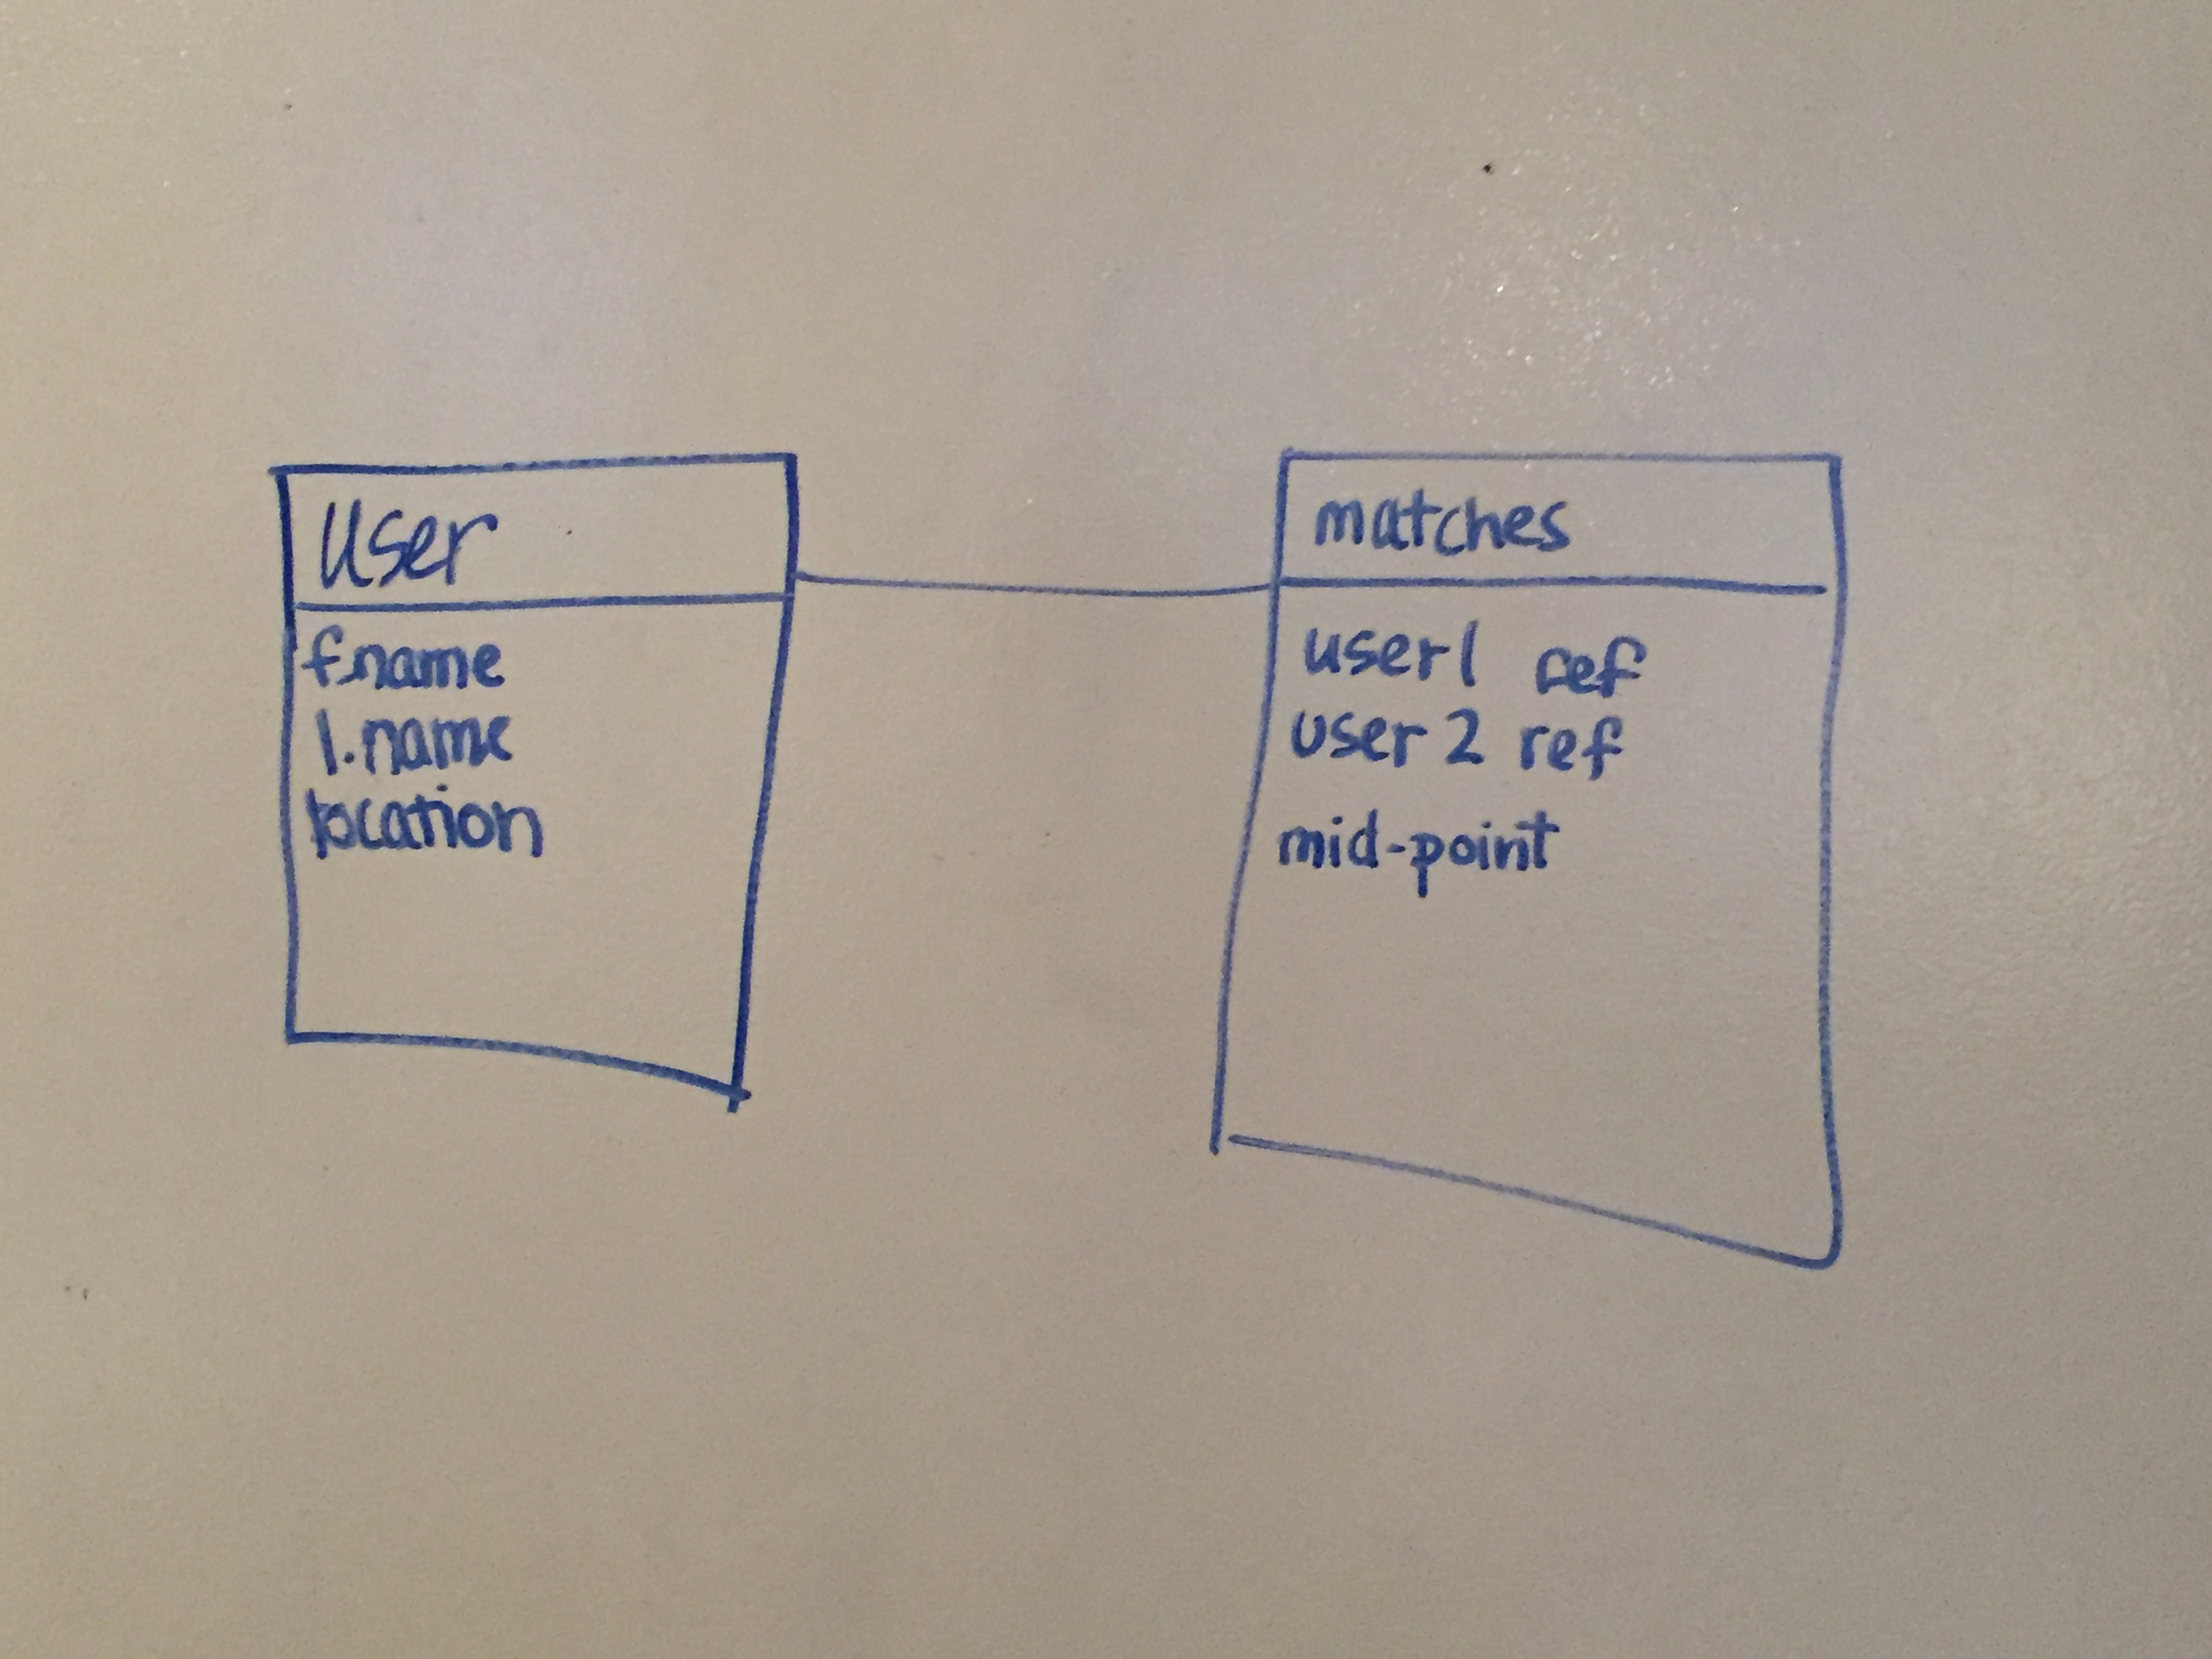 User
f.name
l.name
location
matches
user1 ref
user 2 ref
mid-point